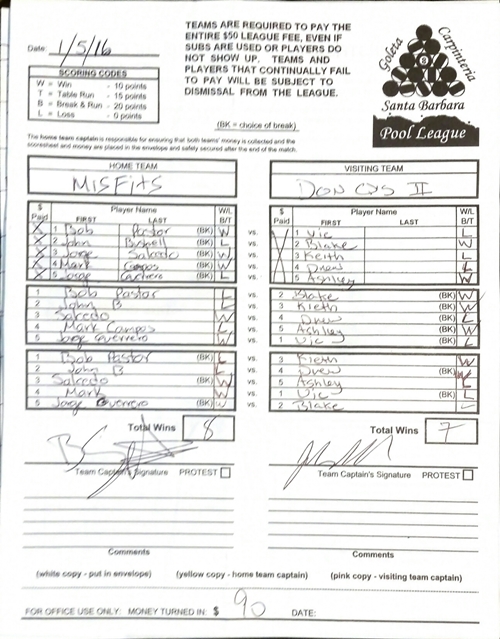 TEAMS ARE REQUIRED TO PAY THE
ENTIRE $50 LEAGUE FEE, EVEN IF
SUBS ARE USED OR PLAYERS DO
NOT SHOW UP. TEAMS AND
PLAYERS THAT CONTINUALLY FAIL
TO PAY WILL BE SUBJECT TO
DISMISSAL FROM THE LEAGUE.
Date: 1/5/16
SCORING CODES
W = Win - 10 points
T = Table Run - 15 points
B = Break & Run - 20 points
L = Loss - 0 points
Goleta Carpinteria
Santa Barbara
Pool League
(BK = choice of break)
The home team captain is responsible for ensuring that both teams' money is collected and the
scoresheet and money are placed in the envelope and safely secured after the end of the match.
HOME TEAM
MISFITS
VISITING TEAM
DON Q'S II
$ Paid Player Name FIRST LAST W/L B/T
$ Paid Player Name FIRST LAST W/L B/T
X 1 Bob Pastor (BK) W vs. 1 Vic L
X 2 John L vs. 2 Blake W
X 3 Jorge Salcedo (BK) W vs. 3 Keith L
X 4 Mark Campos (BK) W vs. 4 Drew L
X 5 Jorge (BK) L vs. 5 Ashley W
1 Bob Pastor L vs. 2 Blake (BK) W
2 John B L vs. 3 Kieth (BK) W
3 Salcedo W vs. 4 Drew (BK) L
4 Mark Campos L vs. 5 Ashley (BK) W
5 Jorge Guerrero W vs. 1 Vic (BK) L
1 Bob Pastor (BK) L vs. 3 Kieth W
2 John B L vs. 4 Drew (BK) W
3 Salcedo (BK) W vs. 5 Ashley L
4 Mark W vs. 1 Vic (BK) L
5 Jorge Guerrero (BK) W vs. 2 Blake L
Total Wins 8
Total Wins 7
Team Captain's Signature PROTEST
Team Captain's Signature PROTEST
Comments
Comments
(white copy - put in envelope) (yellow copy - home team captain) (pink copy - visiting team captain)
FOR OFFICE USE ONLY: MONEY TURNED IN: $ 90 DATE: